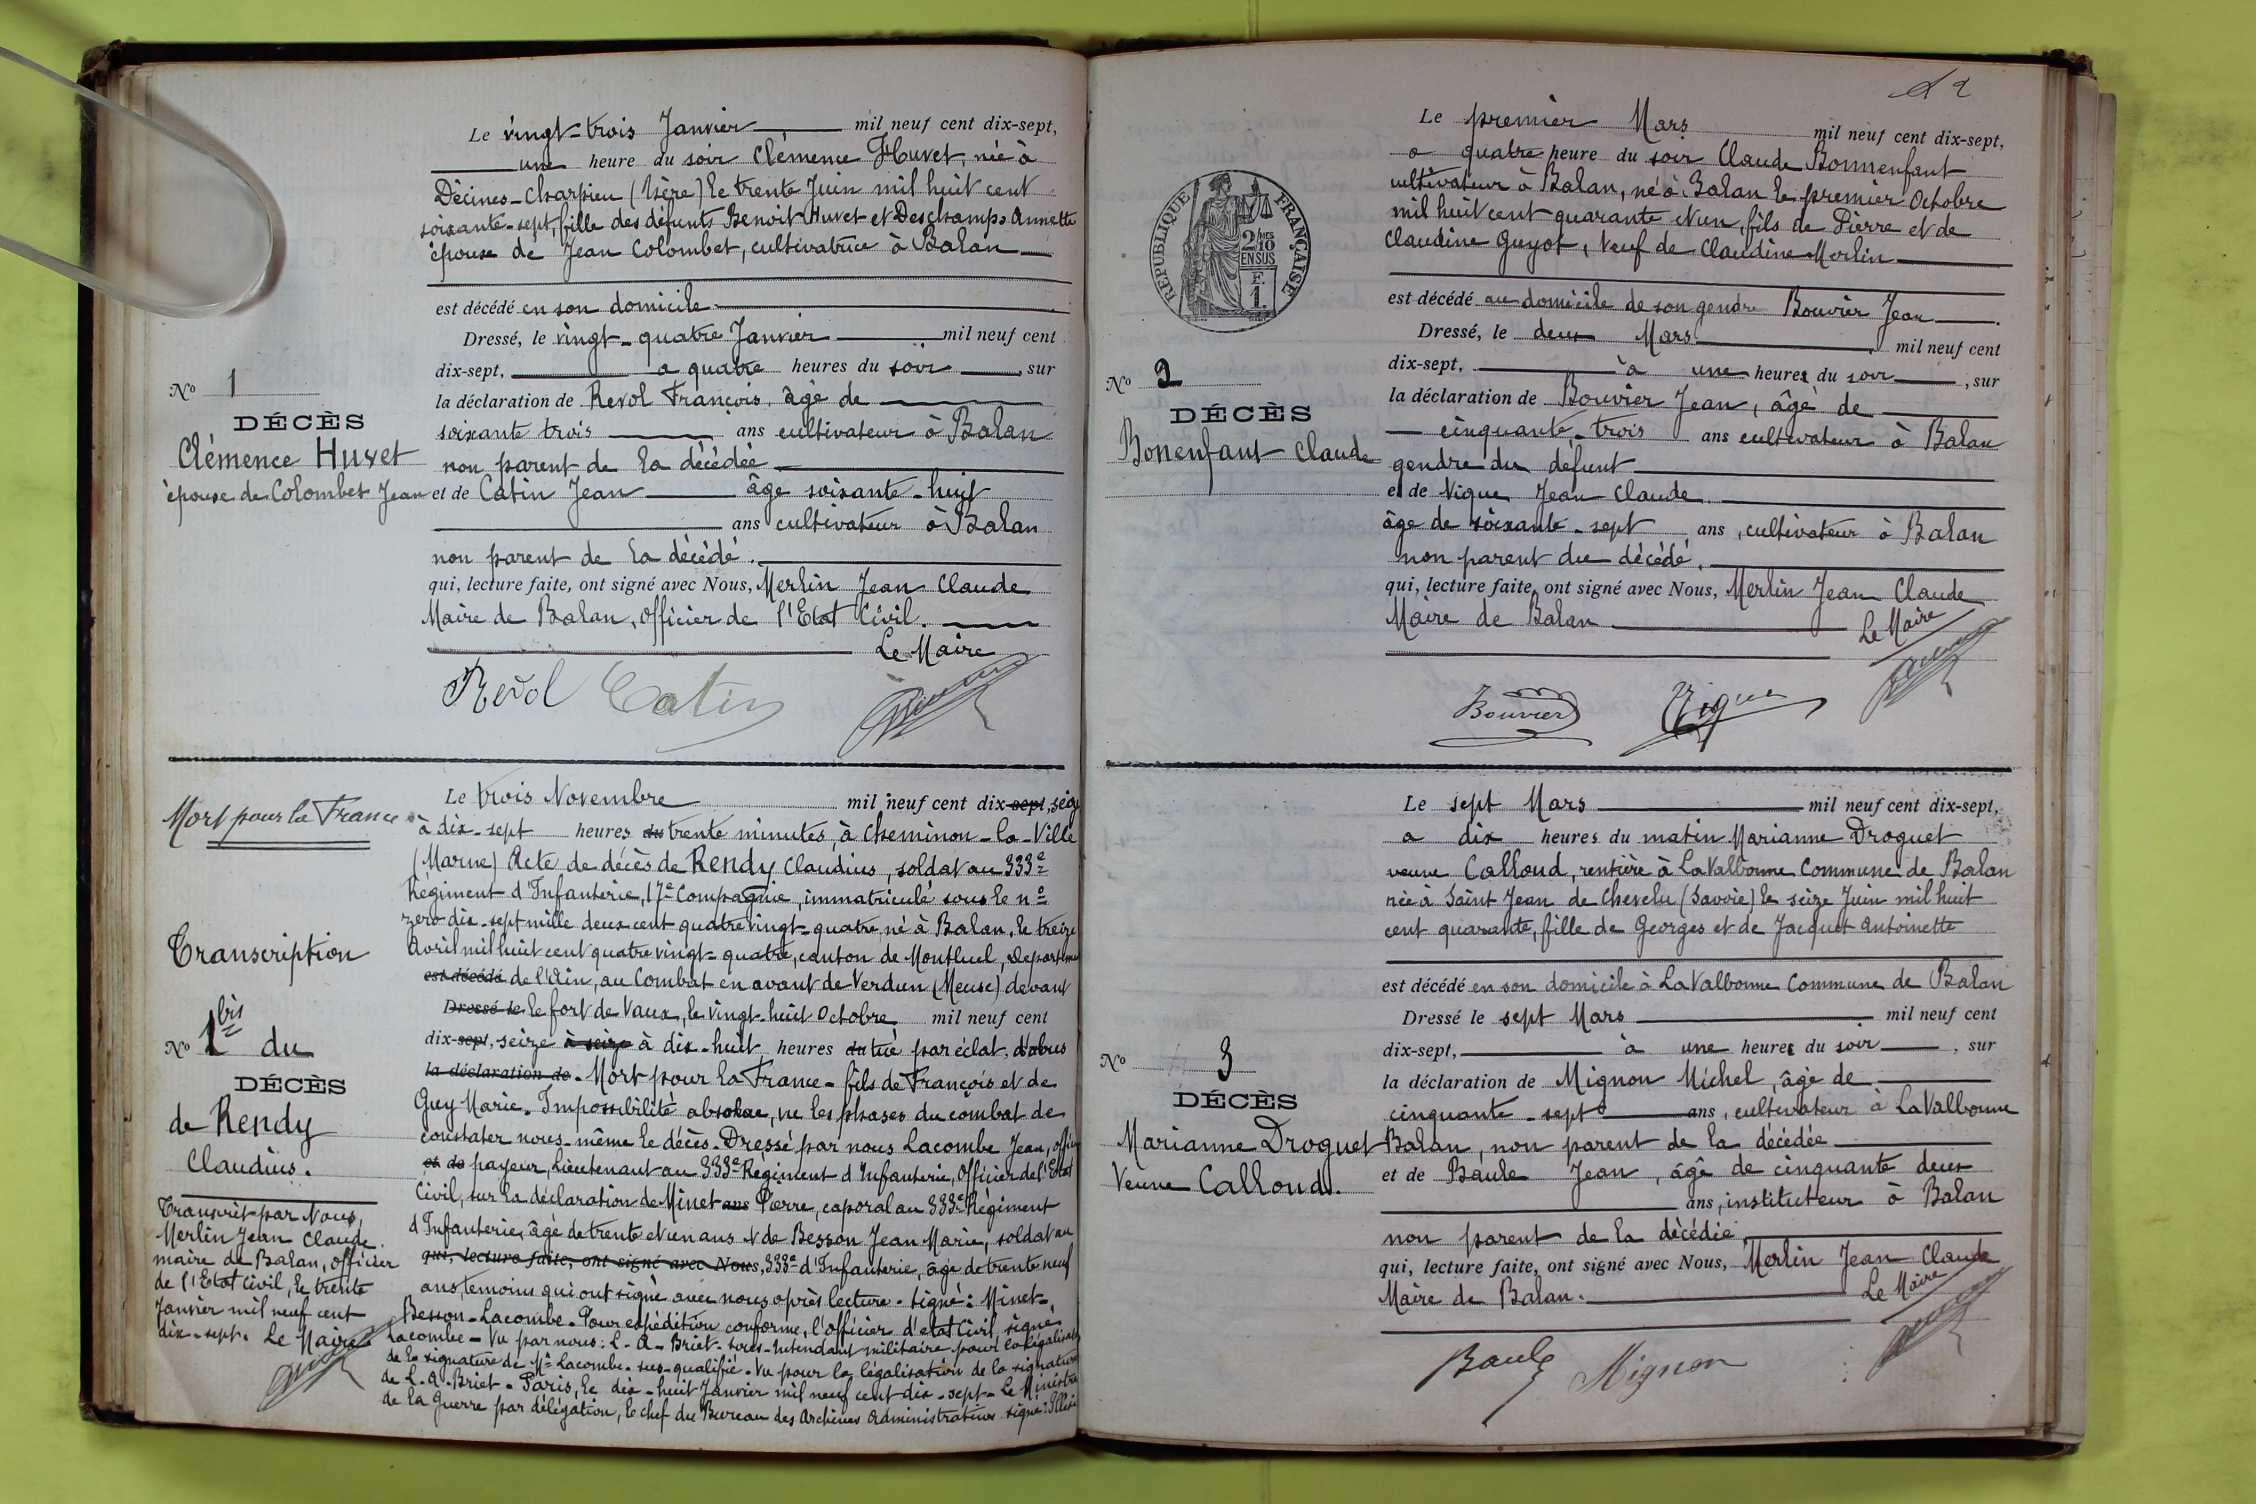 Le vingt-trois Janvier mil neuf cent dix-sept,
une heure du soir Clémence Huvet, née à
Décines-Charpieu (Isère) le trente Juin mil huit cent
soixante-sept, fille des défunts Benoit Huvet et Deschamps Annette
épouse de Jean Colombet, cultivatrice à Balan
est décédé en son domicile
Dressé, le vingt-quatre Janvier mil neuf cent
dix-sept, a quatre heures du soir, sur
la déclaration de Revol François, âgé de
soixante trois ans cultivateur à Balan
non parent de la décédée
et de Catin Jean âge soixante-huit
ans cultivateur à Balan
non parent de la décédé.
qui, lecture faite, ont signé avec Nous, Merlin Jean Claude
Maire de Balan, officier de l'Etat Civil.
Le Maire
Revol Catin
No 1
DÉCÈS
Clémence Huvet
épouse de Colombet Jean
Mort pour la France
Transcription
No 1 bis du
DÉCÈS
de Rendy
Claudius.
Transcrit par Nous,
Merlin Jean Claude
maire de Balan, officier
de l'Etat Civil, le trente
Janvier mil neuf cent
dix-sept. Le Maire
Le trois Novembre mil neuf cent dix-sept, seize
à dix-sept heures du trente minutes, à Cheminon-la-Ville
(Marne) Acte de décès de Rendy Claudius, soldat au 333e
Régiment d'Infanterie, 17e Compagnie, immatriculé sous le no
zero dix-sept mille deux cent quatre vingt-quatre, né à Balan, le treize
Avril mil huit cent quatre vingt-quatre, canton de Montluel, Departement
est décédé de l'Ain, au Combat en avant de Verdun (Meuse) devant
Dressé le le fort de Vaux, le vingt-huit Octobre mil neuf cent
dix-sept, seize à seize à dix-huit heures du tué par éclat d'obus
la déclaration de - Mort pour la France - fils de François et de
Guy Marie. Impossibilité absolue, vu les phases du combat de
constater nous-même le décès. Dressé par nous Lacombe Jean, officier
et de payeur, Lieutenant au 333e Régiment d'Infanterie, Officier de l'Etat
Civil, sur la déclaration de Minet ans Pierre, caporal au 333e Régiment
d'Infanterie, âgé de trente et un ans et de Besson Jean Marie, soldat au
qui, lecture faite, ont signé avec Nous, 333e d'Infanterie, âgé de trente neuf
ans, temoins qui ont signé avec nous après lecture. signé: Minet,
Besson-Lacombe-Pour expédition conforme, l'officier d'etat Civil, signé
Lacombe-Vu par nous: L.A. Briet-sous-Intendant militaire pour la légalisation
de la signature de Mr Lacombe sus-qualifié. Vu pour la légalisation de la signature
de L.A. Briet. Paris, le dix-huit Janvier mil neuf cent dix-sept. Le Ministre
de la Guerre par délégation, le chef du Bureau des Archives administratives signé:
Le premier Mars mil neuf cent dix-sept,
a quatre heure du soir Claude Bonnenfant
cultivateur à Balan, né à Balan le premier Octobre
mil huit cent quarante et un, fils de Pierre et de
Claudine Guyot, veuf de Claudine Merlin
est décédé au domicile de son gendre Bouvier Jean
Dressé, le deux Mars mil neuf cent
dix-sept, à une heures du soir, sur
la déclaration de Bouvier Jean, âgé de
cinquante-trois ans cultivateur à Balan
gendre du défunt
et de Vigue Jean Claude
âge de soixante-sept ans, cultivateur à Balan
non parent du décédé.
qui, lecture faite, ont signé avec Nous, Merlin Jean Claude
Maire de Balan
Le Maire
Bouvier Vigue
RÉPUBLIQUE FRANÇAISE
2/10 MES
EN SUS
F.
1.
No 2
DÉCÈS
Bonenfant Claude
Le sept Mars mil neuf cent dix-sept,
a dix heures du matin Marianne Droguet
veuve Calloud, rentière à La Valbonne Commune de Balan
née à Saint Jean de Chevelu (Savoie) le seize Juin mil huit
cent quarante, fille de Georges et de Jacquet Antoinette
est décédé en son domicile à La Valbonne Commune de Balan
Dressé le sept Mars mil neuf cent
dix-sept, à une heures du soir, sur
la déclaration de Mignon Michel, âgé de
cinquante-sept ans, cultivateur à La Valbonne
Balan, non parent de la décédée
et de Baule Jean, âgé de cinquante deux
ans, instituteur à Balan
non parent de la décédée.
qui, lecture faite, ont signé avec Nous, Merlin Jean Claude
Maire de Balan.
Le Maire
Baule Mignon
No 3
DÉCÈS
Marianne Droguet
Veuve Calloud.